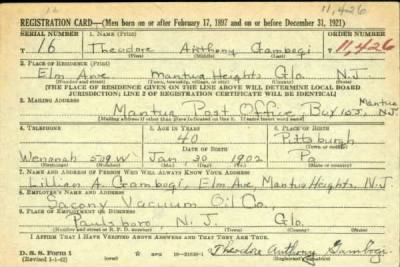 11,426
REGISTRATION CARD—(Men born on or after February 17, 1897 and on or before December 31, 1921)
SERIAL NUMBER 1. NAME (Print) ORDER NUMBER
T 16 Theodore Anthony Gambogi 11,426
2. PLACE OF RESIDENCE (Print)
Elm Ave Mantua Heights Glo. N.J.
(Number and street) (Town, township, village, or city) (County) (State)
[THE PLACE OF RESIDENCE GIVEN ON THE LINE ABOVE WILL DETERMINE LOCAL BOARD
JURISDICTION; LINE 2 OF REGISTRATION CERTIFICATE WILL BE IDENTICAL]
3. MAILING ADDRESS
Mantua Post Office Box 152 Mantua N.J.
[Mailing address if other than place indicated on line 2. If same insert word same]
4. TELEPHONE 5. AGE IN YEARS 6. PLACE OF BIRTH
40 Pittsburgh
DATE OF BIRTH (Town or county)
Wenonah 509 W Jan. 30 1902 Pa
(Exchange) (Number) (Mo.) (Day) (Yr.) (State or country)
7. NAME AND ADDRESS OF PERSON WHO WILL ALWAYS KNOW YOUR ADDRESS
Lillian A. Gambogi, Elm Ave, Mantua Heights, N.J.
8. EMPLOYER'S NAME AND ADDRESS
Socony Vacuum Oil Co.,
9. PLACE OF EMPLOYMENT OR BUSINESS
Paulsboro, N.J. Glo.
(Number and street or R. F. D. number) (Town) (County) (State)
I AFFIRM THAT I HAVE VERIFIED ABOVE ANSWERS AND THAT THEY ARE TRUE.
D. S. S. Form 1 Theodore Anthony Gambogi
(Revised 1-1-42) (over) (Registrant's signature)